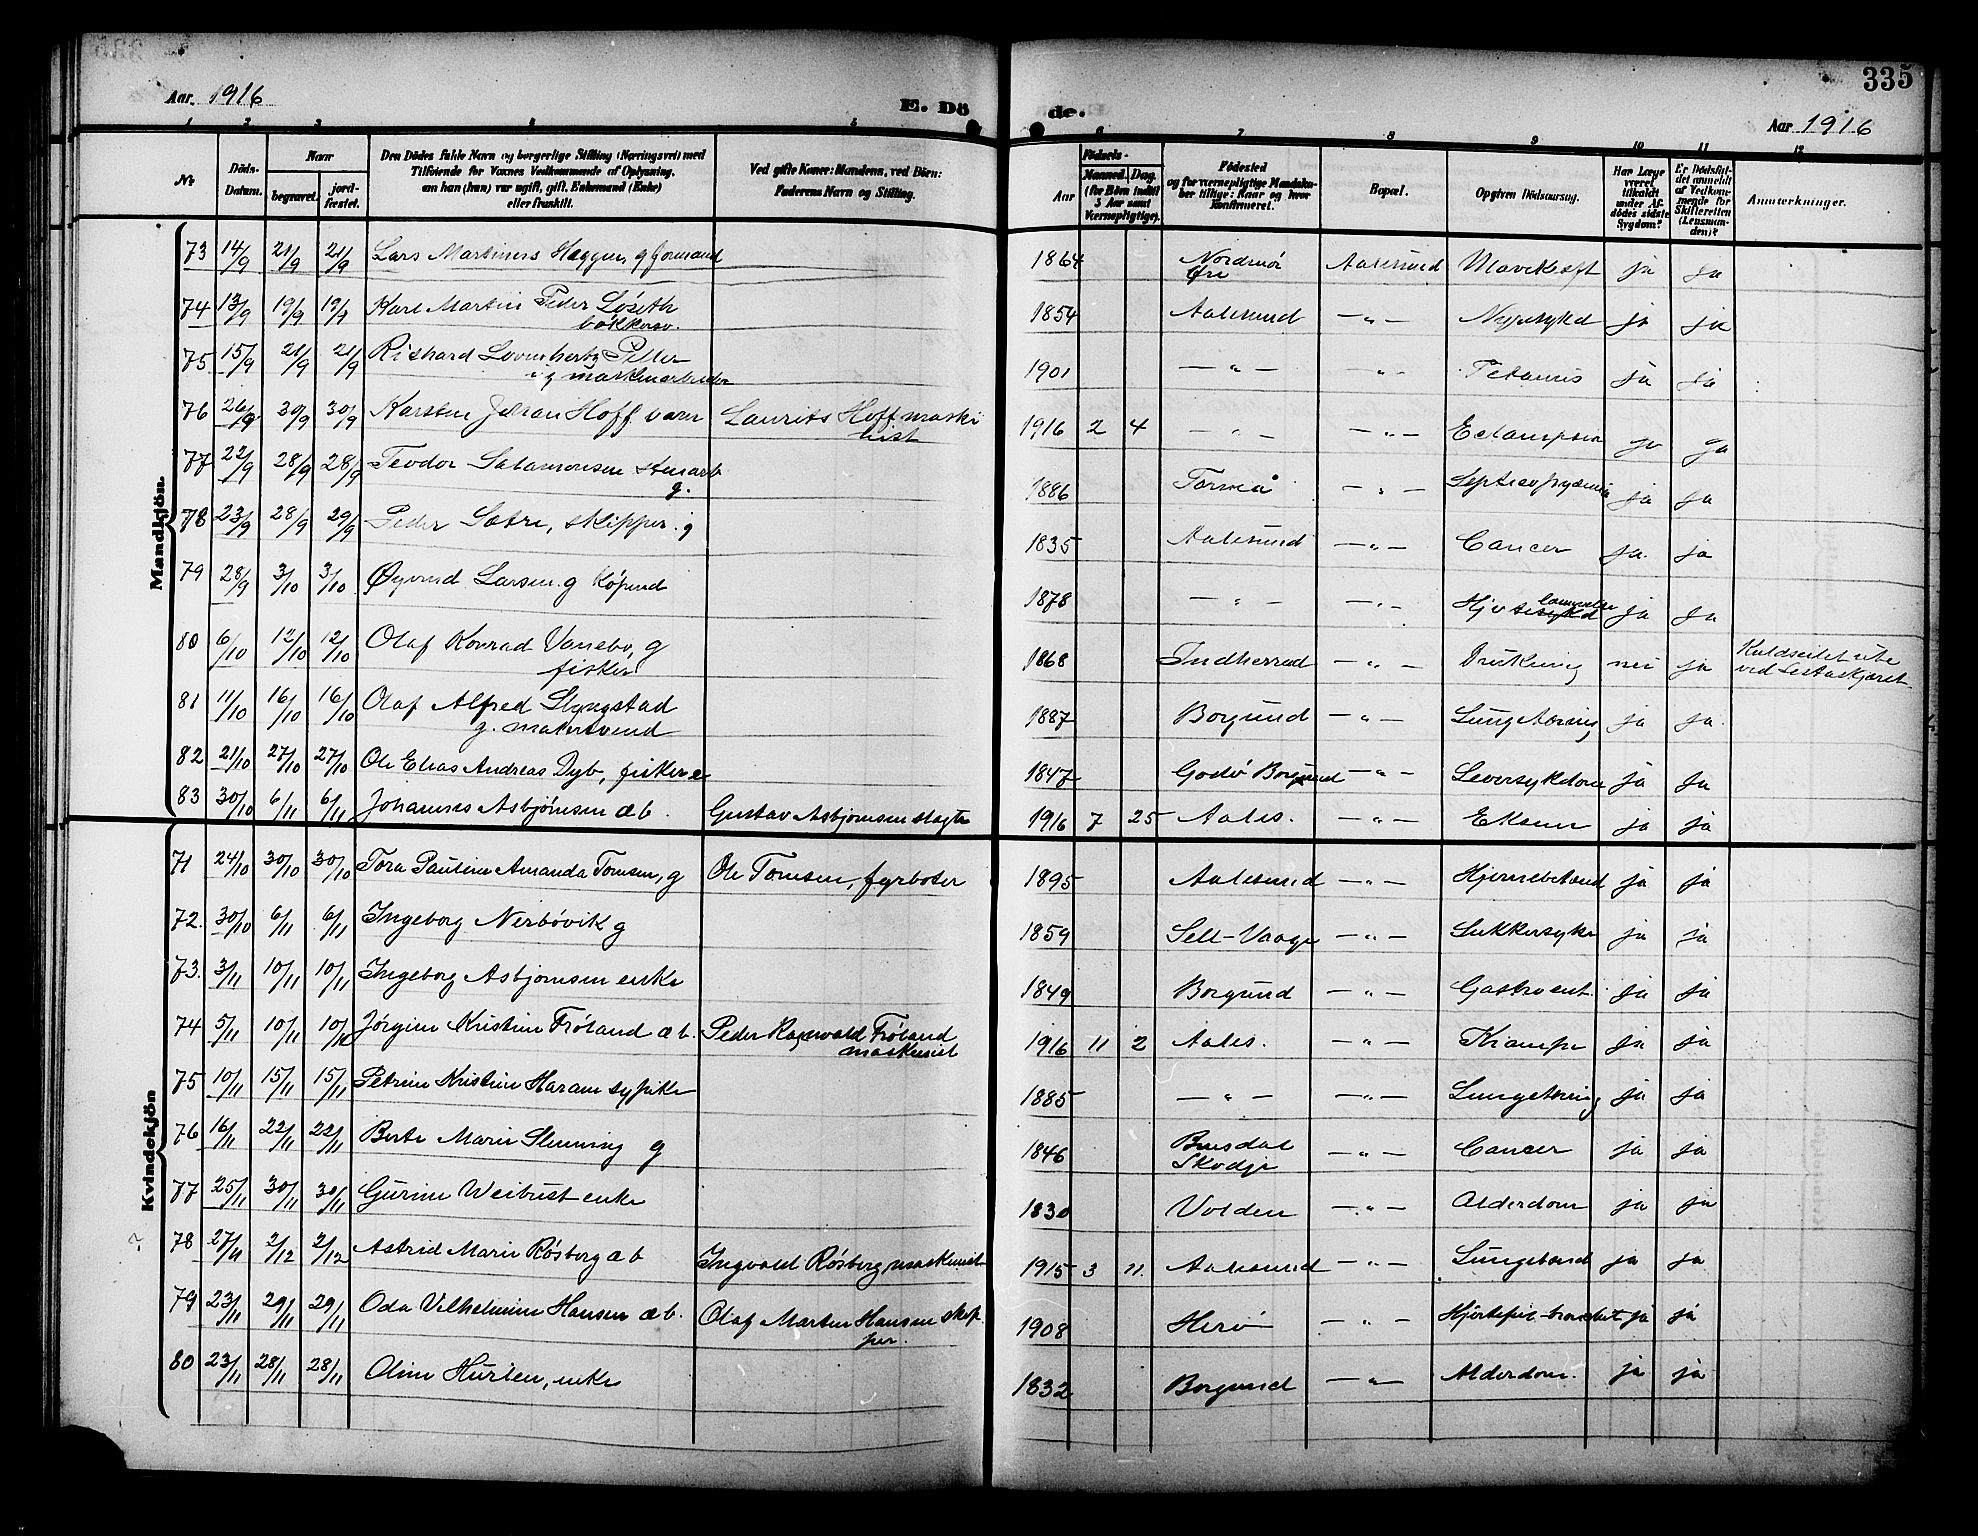 335
Aar 1916
E. Dö de.
Aar 1916
1 2 3 4 5 6 7 8 9 10 11 12
No
Döds-Datum.
Naar
begravet.
jord-fæstet.
Den Dödes fulde Navn og borgerlige Stilling (Næringsvei) med
Tilföiende for Voxnes Vedkommende af Oplysning,
om han (hun) var ugift, gift, Enkemand (Enke)
eller fraskilt.
Ved gifte Koner: Mandens, ved Börn:
Faderens Navn og Stilling.
Födsels-
Aar
Maaned. Dag.
(for Börn indtil
3 Aar samt
Værnepligtige).
Födested
og for værnepligtige Mandska-
ber tillige: Naar og hvor
Konfirmeret.
Bopæl.
Opgiven Dödsaarsag.
Har Læge
været
tilkaldt
under Af-
dödes sidste
Sygdom?
Er Dödsfal-
det anmeldt
af Vedkom-
mende for
Skifteretten
(Lensman-
den)?
Anmærkninger.
Mandkjön.
73 14/9 21/9 21/9 Lars Martinus Hæggen, g formand 1864 Nordmör Aalesund Mavekræft ja ja
Øre
74 13/9 19/9 19/9 Karl Martin Peder Løseth 1854 Aalesund —"— Nyresykd ja ja
bøkkersv.
75 15/9 21/9 21/9 Rishard Lovenhertz Petter 1901 —"— —"— Tetanus ja ja
ig maskinarbeider
76 26/9 30/9 30/9 Karsten Johan Hoff. barn Laurits Hoff maski 1916 2 4 —"— —"— Eclampsia ja ja
nist
77 22/9 28/9 28/9 Teodor Salamonsen stenarb 1886 —"— ja ja
g.
78 23/9 28/9 29/9 Peder Sætre, skipper. g 1835 Aalesund —"— Cancer ja ja
79 28/9 3/10 3/10 Øyvind Larsen. g køpmd 1878 —"— —"— Hjerte lammelse ja ja
80 6/10 12/10 12/10 Olaf Konrad Vannebo, g 1868 Indherred —"— Drukning nei ja Kuldseilet
fisker
81 11/10 16/10 16/10 Olaf Alfred Slyngstad 1887 Borgund —"— Lungetæring ja ja
g. malersvend
82 21/10 27/10 27/10 Ole Elias Andreas Dyb, fisker e 1847 Godø Borgund —"— Leversykdom ja ja
83 30/10 6/11 6/11 Johannes Asbjørnsen æ b. Gustav Asbjørnsen slagter 1916 7 25 Aales. —"— Eksem ja ja
Kvindekjön
71 24/10 30/10 30/10 Tora Pauline Amanda Tomsen, g Ole Tomsen, fyrbøter 1895 Aalesund —"— Hjernebetænd ja ja
72. 30/10 6/11 6/11 Ingeborg Nerbøvik g 1859 —"— Sukkersyke ja ja
73. 3/11 10/11 10/11 Ingeborg Asbjørnsen enke 1849 Borgund —"— Gastroent. ja ja
74 5/11 10/11 10/11 Jørgine Kristine Frøland æ b. Peder Ragnvald Frøland 1916 11 2 Aales. —"— Krampe ja ja
maskinist
75 10/11 15/11 15/11 Petrine Kristine Haram sypike 1885 —"— —"— Lungetæring ja ja
76 16/11 22/11 22/11 Berte Marie Slenning g 1846 Brusdal —"— Cancer ja ja
Skodje
77 25/11 30/11 30/11 Gurine Weibust enke 1830 Volden —"— Alderdom ja ja
78 27/11 2/12 2/12 Astrid Marie Røsberg æ b Ingvald Røsberg, maskinist 1915 3 11. Aalesund —"— Lungebetænd ja ja
79 23/11 29/11 29/11 Oda Vilhelmine Hansen æ b. Olaf Martin Hansen skip 1908 Herø —"— ja ja
per.
80 23/11 28/11 28/11 Oline Hurlen, enke 1832 Borgund —"— Alderdom. ja ja